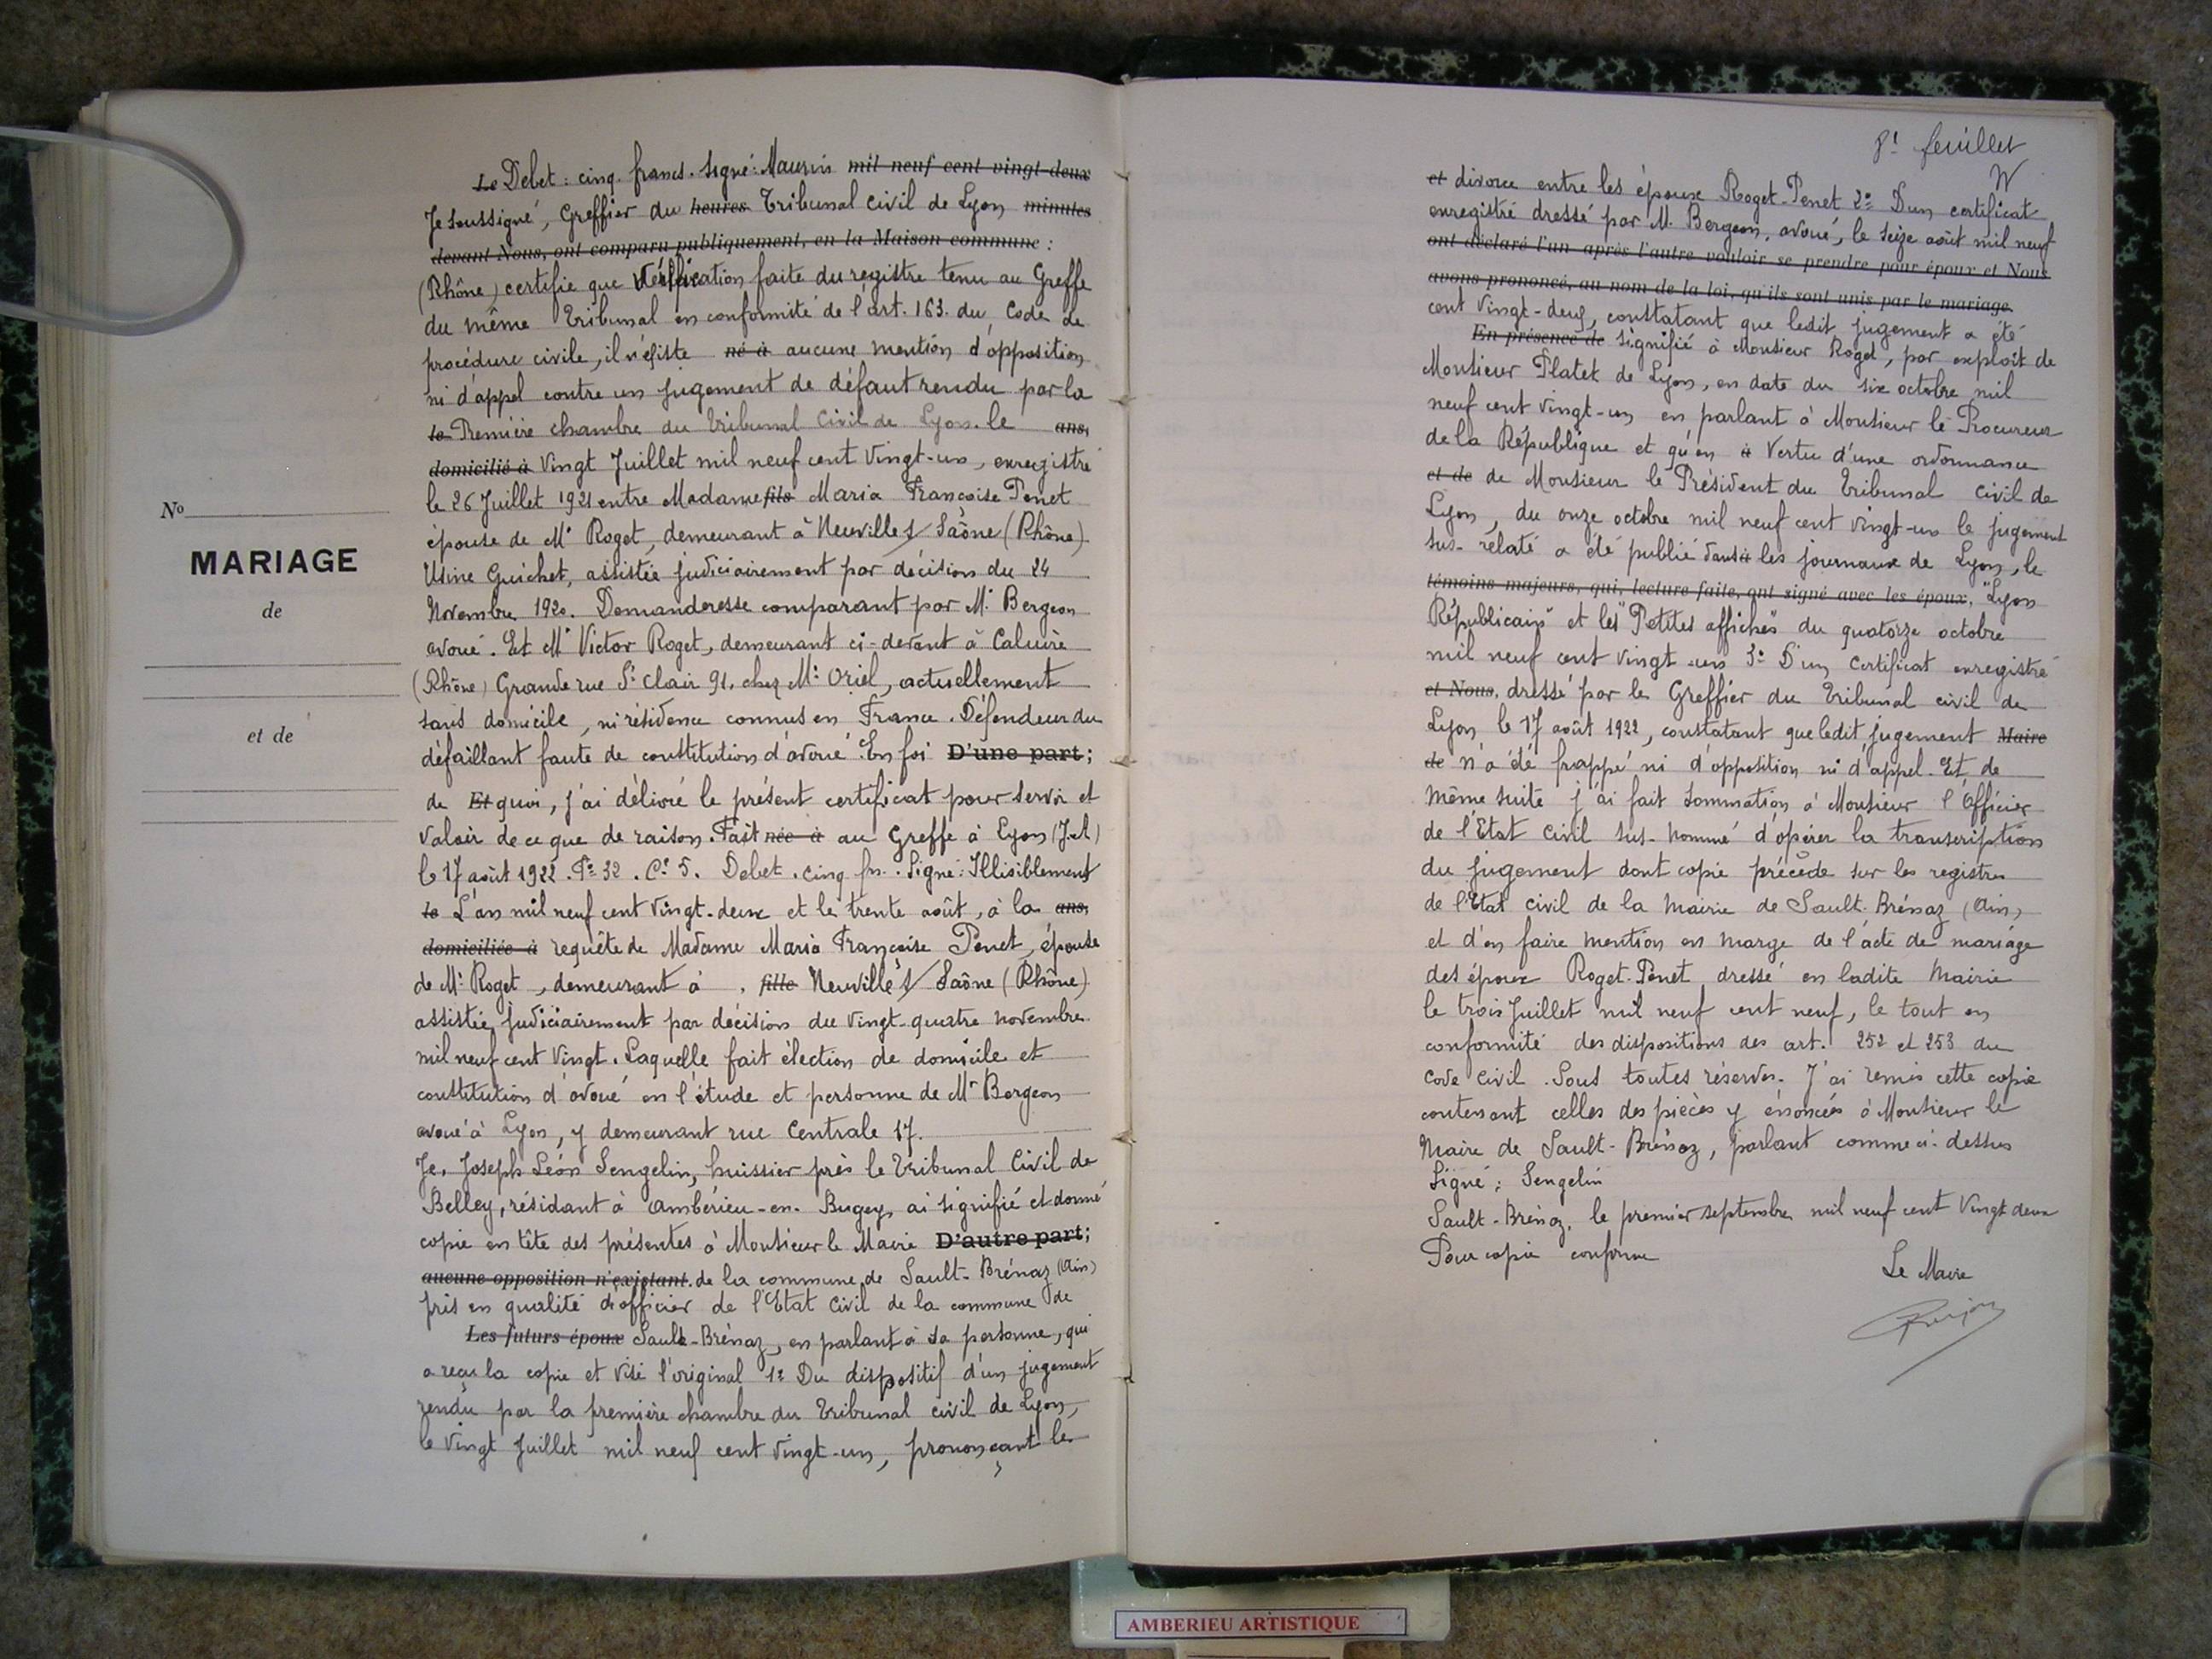 Le Debet : cinq francs. Signé : Maurin mil neuf cent vingt-deux
Je soussigné, Greffier du heures Tribunal civil de Lyon minutes
devant Nous, ont comparu publiquement, en la Maison commune :
(Rhône) certifie que Vérification faite du registre tenu au Greffe
du même Tribunal en conformité de l'art. 163. du Code de
procédure civile, il n'existe né à aucune mention d'opposition
ni d'appel contre un jugement de défaut rendu par la
le Première chambre du Tribunal Civil de Lyon. le ans,
domicilié à Vingt Juillet mil neuf cent Vingt-un, enregistré
le 26 Juillet 1921 entre Madame fils Maria Françoise Penet
No
épouse de Mr Roget, demeurant à Neuville s/ Saône (Rhône).
MARIAGE
Usine Guichet, assistée judiciairement par décision du 24
de
Novembre 1920. Demanderesse comparant par Me Bergeon
avoué. Et Mr Victor Roget, demeurant ci-devant à Caluire
(Rhône) Grande rue St Clair 91. chez Mr Oriel, actuellement
sans domicile, ni résidence connus en France. Défendeur du
et de
défaillant faute de constitution d'avoué. En foi D'une part ;
de Et quoi, j'ai délivré le présent certificat pour servir et
valoir de ce que de raison. Fait née à au Greffe à Lyon (J.A)
le 17 août 1922. Fo 32. Ce 5. Debet. cinq frs. Signé : Illisiblement
le L'an mil neuf cent vingt-deux et le trente août, à la ans,
domiciliée à requête de Madame Maria Françoise Penet, épouse
de Mr Roget, demeurant à . fille Neuville s/ Saône (Rhône).
assistée judiciairement par décision du vingt-quatre novembre
mil neuf cent vingt. Laquelle fait élection de domicile et
constitution d'avoué en l'étude et personne de Me Bergeon
avoué à Lyon, y demeurant rue Centrale 17.
Je, Joseph Léon Sengelin, huissier près le Tribunal Civil de
Belley, résidant à Ambérieu-en-Bugey, ai signifié et donné
copie en tête des présentes à Monsieur le Maire D'autre part ;
aucune opposition n'existant. de la commune de Sault-Brénaz (Ain)
pris en qualité d'officier de l'Etat Civil de la commune de
Les futurs époux Sault-Brénaz, en parlant à sa personne, qui
a reçu la copie et visé l'original 1o Du dispositif d'un jugement
rendu par la première chambre du Tribunal civil de Lyon,
le vingt Juillet mil neuf cent vingt-un, prononçant le
8e feuillet
et divorce entre les époux Roget-Penet 2o D'un certificat
enregistré dressé par Me Bergeon, avoué, le seize août mil neuf
ont déclaré l'un après l'autre vouloir se prendre pour époux et Nous
avons prononcé, au nom de la loi, qu'ils sont unis par le mariage.
cent Vingt-deux, constatant que ledit jugement a été
En présence de signifié à Monsieur Roget, par exploit de
Monsieur Platet de Lyon, en date du six octobre mil
neuf cent vingt-un en parlant à Monsieur le Procureur
de la République et qu'en à Vertu d'une ordonnance
et de de Monsieur le Président du Tribunal Civil de
Lyon, du onze octobre mil neuf cent vingt-un le jugement
sus-relaté a été publié dans à les journaux de Lyon, le
témoins majeurs, qui, lecture faite, ont signé avec les époux, "Lyon
Républicain" et les "Petites affiches" du quatorze octobre
mil neuf cent vingt-un 3o D'un certificat enregistré
et Nous, dressé par le Greffier du Tribunal civil de
Lyon le 17 août 1922, constatant que ledit jugement Maire
de n'a été frappé ni d'opposition ni d'appel. Et de
même suite j'ai fait sommation à Monsieur l'Officier
de l'Etat Civil sus-nommé d'opérer la transcription
du jugement dont copie précède sur les registres
de l'Etat civil de la Mairie de Sault-Brénaz (Ain)
et d'en faire mention en marge de l'acte de mariage
des époux Roget-Penet, dressé en ladite Mairie
le trois Juillet mil neuf cent neuf, le tout en
conformité des dispositions des art. 252 et 253 du
Code Civil. Sous toutes réserves. J'ai remis cette copie
contenant celles des pièces y énoncées à Monsieur le
Maire de Sault-Brénaz, parlant comme ci-dessus
Signé : Sengelin
Sault-Brénaz, le premier septembre mil neuf cent Vingt deux
Pour copie conforme
Le Maire
AMBERIEU ARTISTIQUE